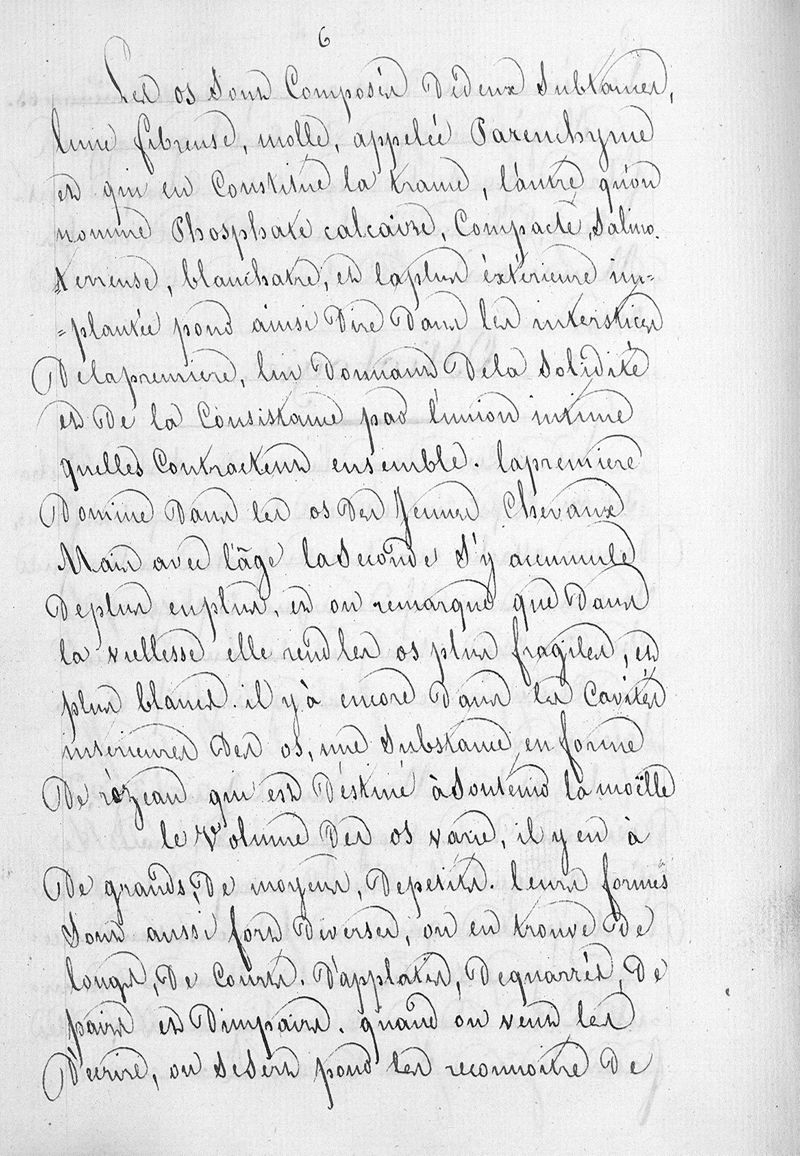 6
Les os Sont Composés dedeux Substances,
lune fibreuse, molle, appelée Parenchyme
et qui en Constitue la trame, l'autre qu'on
nomme Phosphate calcaire, Compacte, Salino.
terreuse, blanchatre, et laplus éxtérieure im=
=plantée pour ainsi Dire Dans les interstices
Delapremiere, lui Donnant Dela Solidité
et De la Consistance par l'union intime
quelles Contractent ensemble. lapremiere
Domine Dans les os Des Jeunes Chevaux
Mais avec l'âge laSeconde S'y accumule
Deplus enplus, et on remarque que Dans
la viellesse elle rend les os plus fragiles, et
plus blancs. il y'à encore Dans les Cavités
intérieures Des os, une Substance en forme
De rézeau qui est Déstiné àSoutenir la moëlle
le Volume Des os varie, il y en à
De grands, De moyens, Depetits. leurs formes
Sont aussi fort Diverses, on en trouve De
longs, De Courts. D'applatis, Dequarrés, De
pairs et Dimpairs. quand on veut les
Décrire, on SeSert pour les reconnoitre De